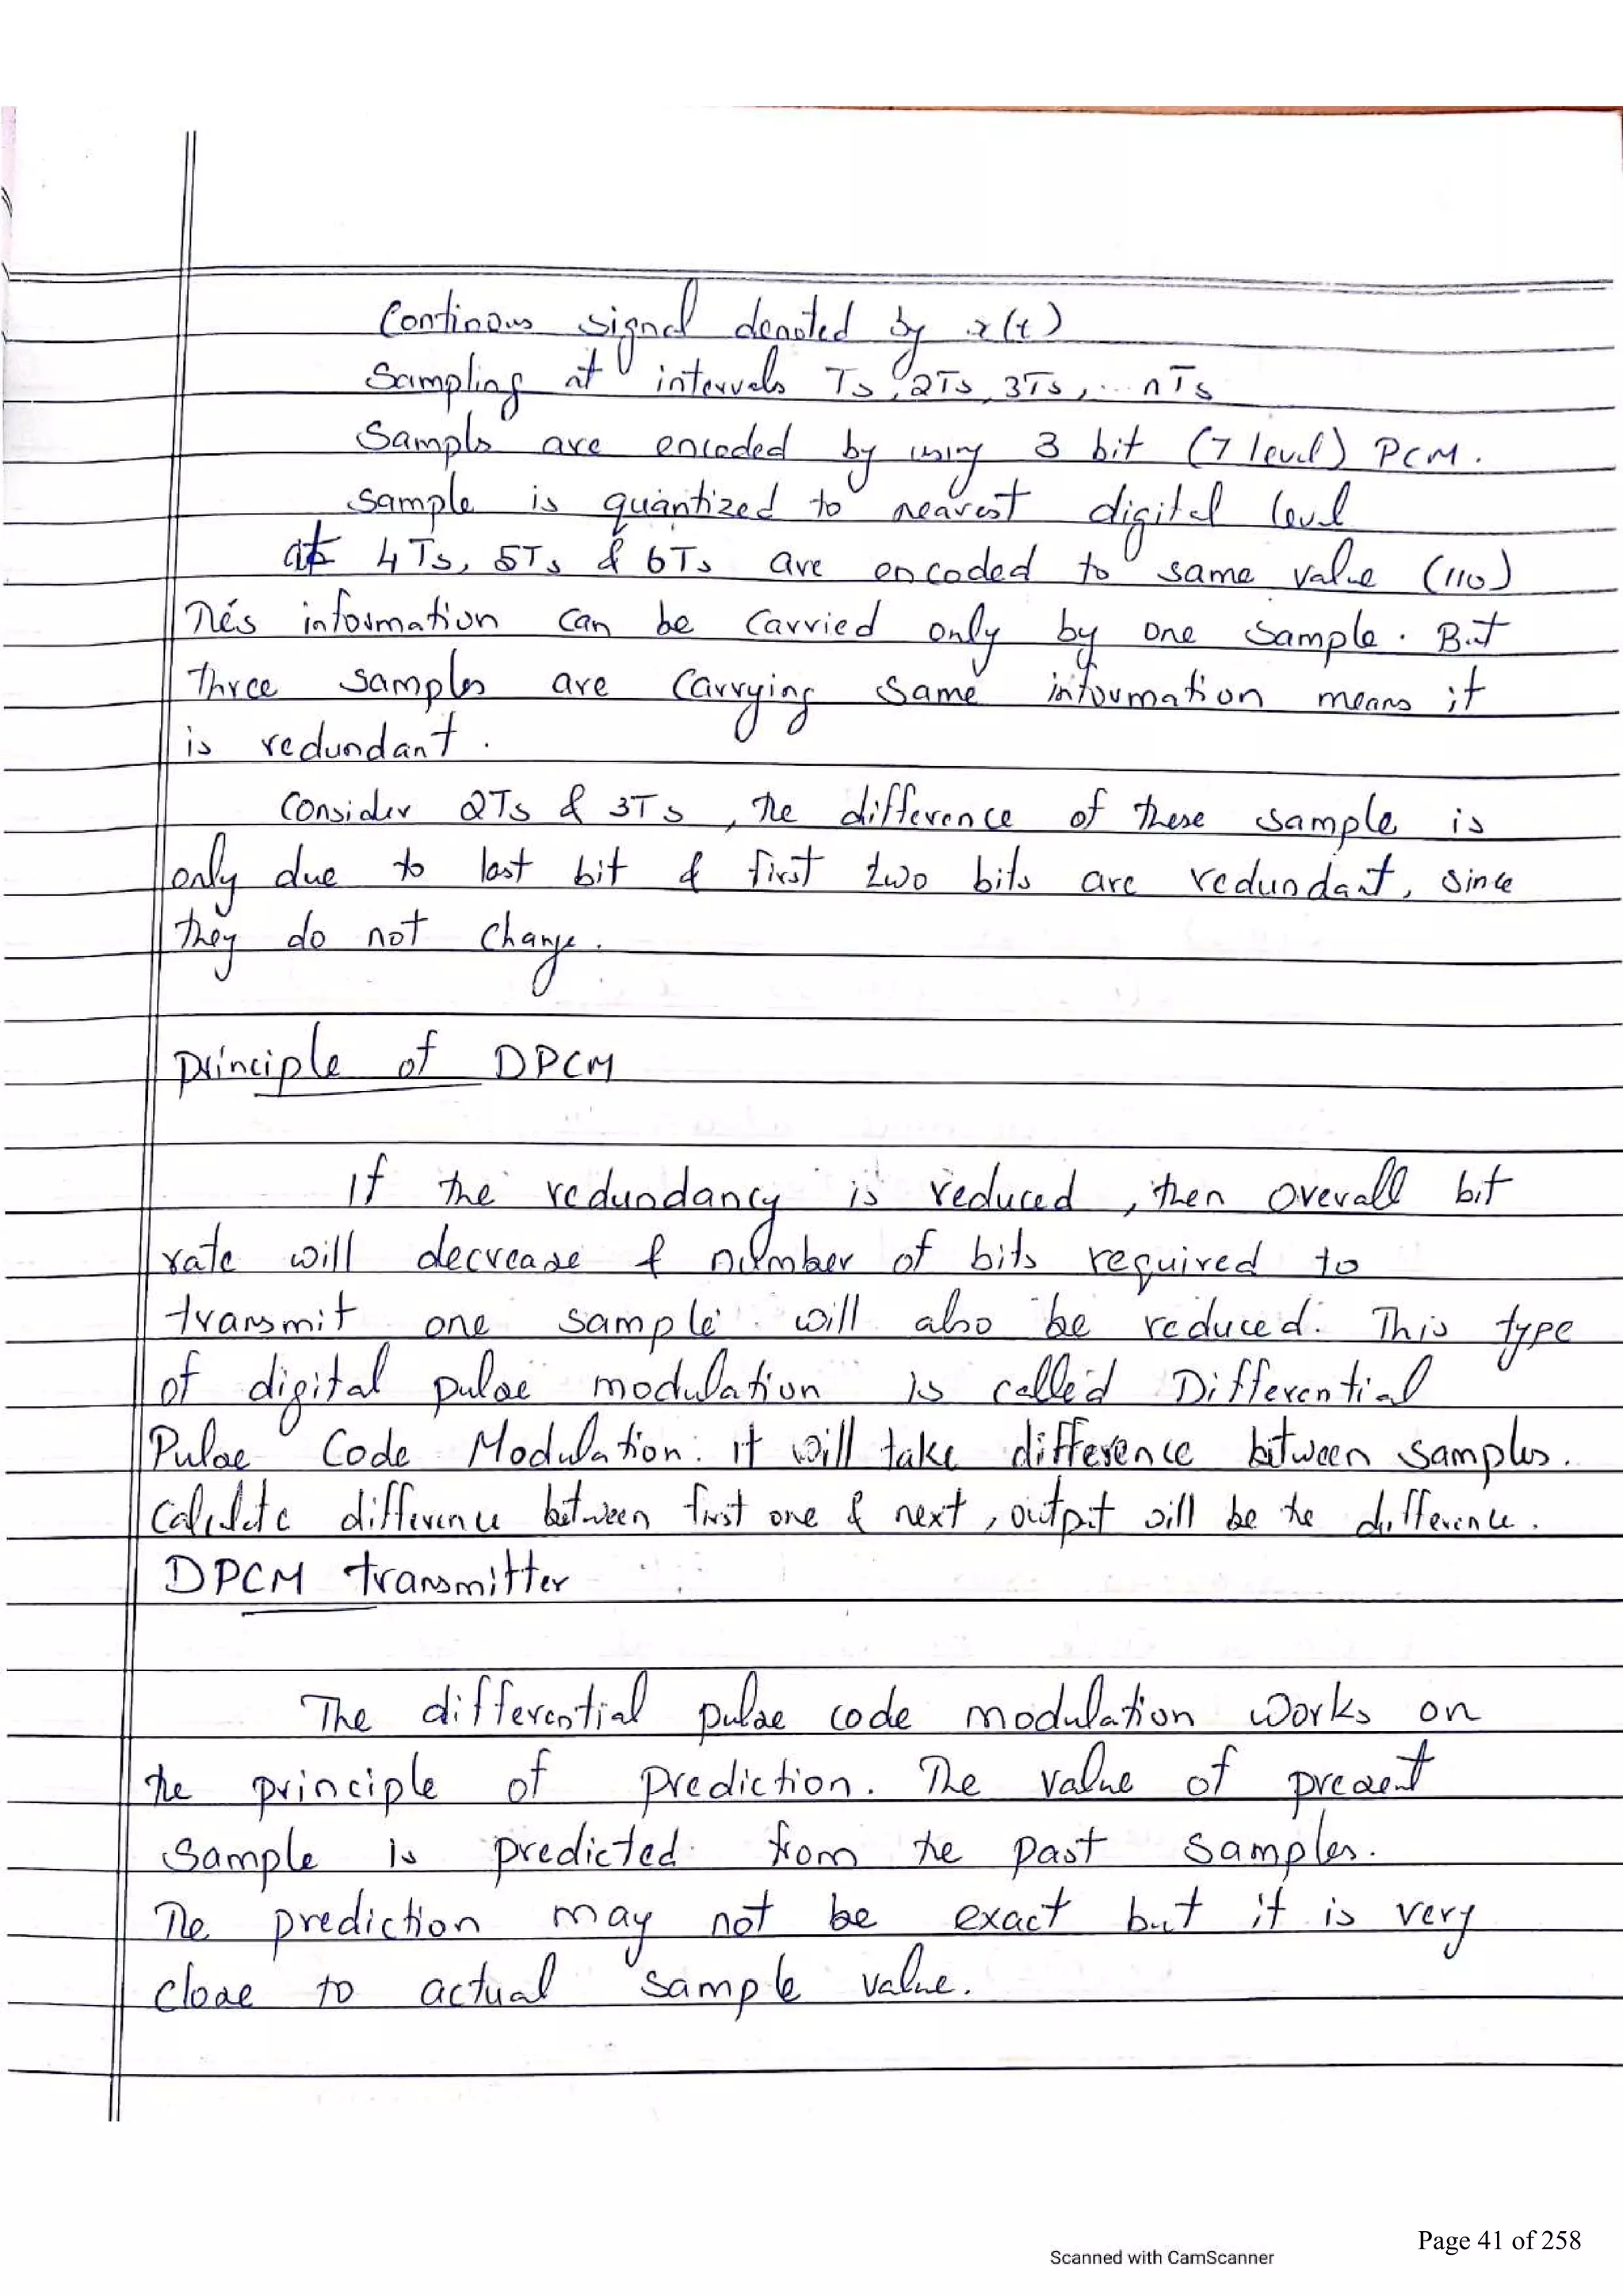 Continous signal denoted by x(t)
Sampling at intervals Ts, 2Ts, 3Ts, ... nTs
Sampls are encoded by using 3 bit (7 level) PCM.
sample is quantized to nearest digital level
at 4Ts, 5Ts & 6Ts are encoded to same value (110)
This information can be carried only by one sample. But
three samples are carrying same information means it
is redundant.
Consider 2Ts & 3Ts, the difference of these sample is
only due to last bit & first two bits are redundant, since
they do not change.
Principle of DPCM
If the redundancy is reduced, then overall bit
rate will decrease & number of bits required to
transmit one sample will also be reduced. This type
of digital pulse modulation is called Differential
Pulse Code Modulation. it will take difference between samples.
Calculate difference between first one & next, output will be the difference.
DPCM transmitter
The differential pulse code modulation works on
the principle of prediction. The value of present
sample is predicted from the past samples.
The prediction may not be exact but it is very
close to actual sample value.
Scanned with CamScanner
Page 41 of 258